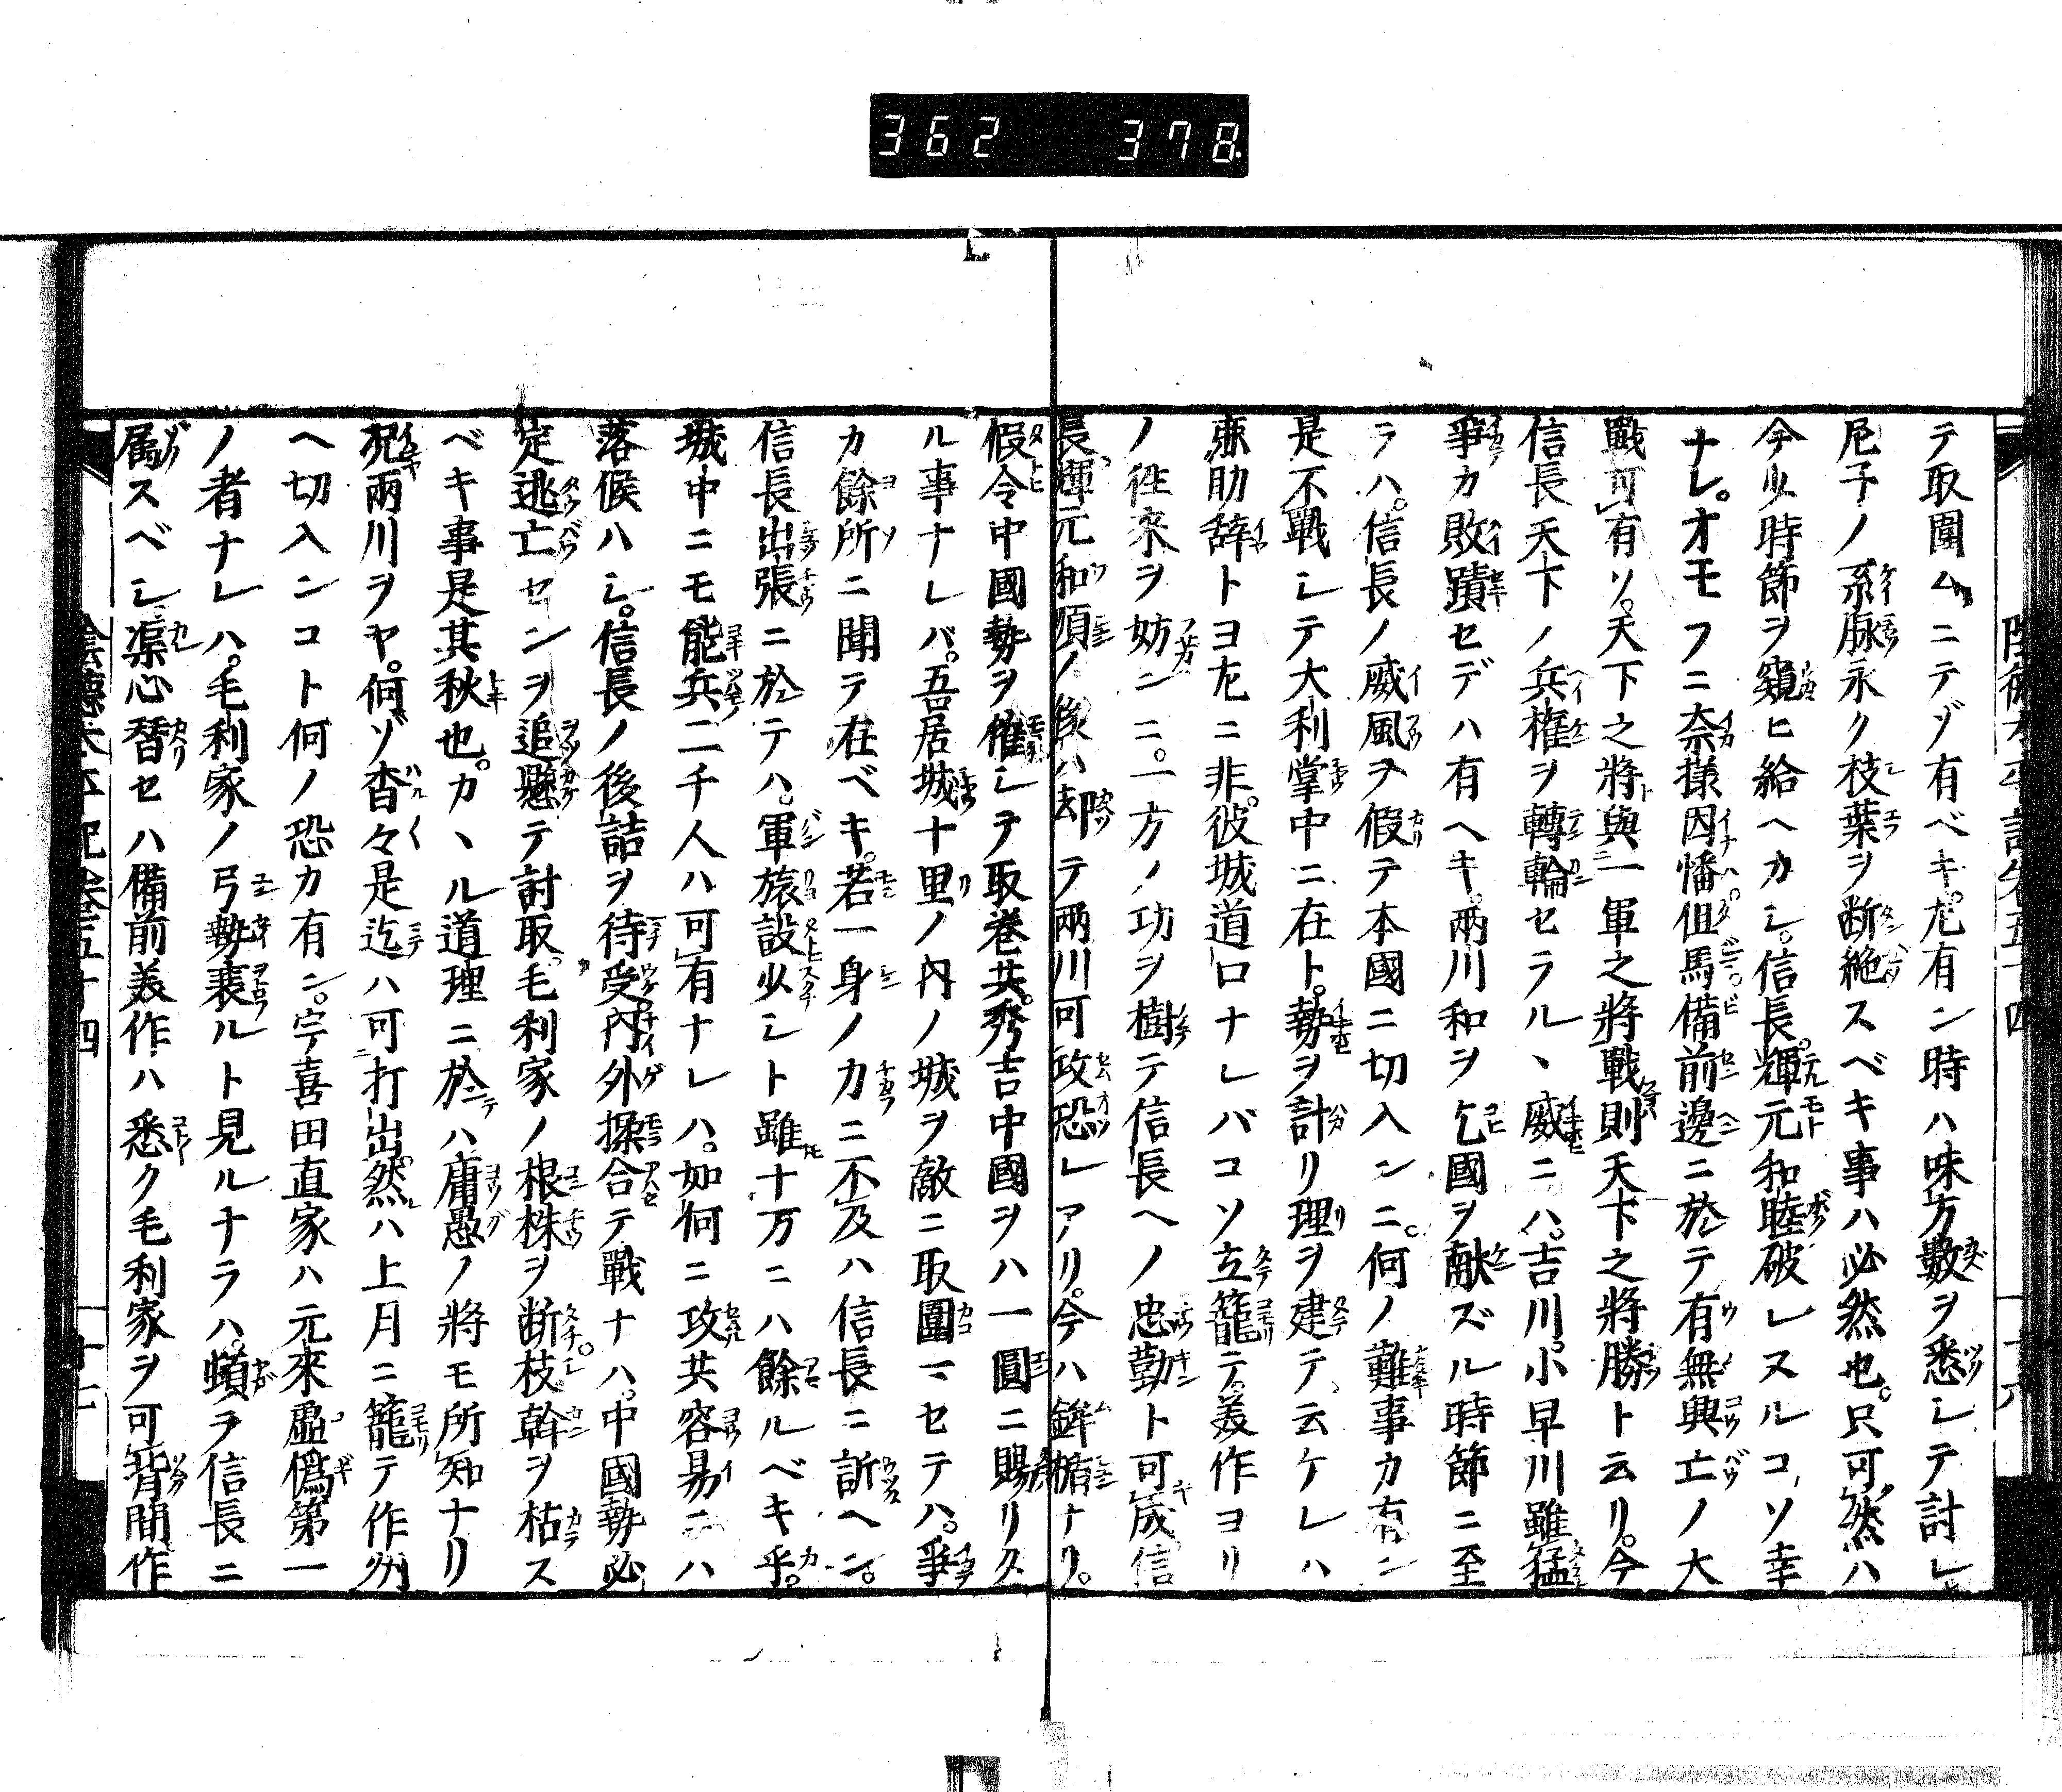 362 378
テ取圍ムニテゾ有ベキ。尤有ン時ハ味方數ヲ悉シテ討レ
尼子ノ系脉永ク枝葉ヲ断絶スベキ事ハ必然也。只可然ハ
今少時節ヲ窺ヒ給ヘカシ。信長。輝元和睦破レスルコソ幸
ナレ。オモフニ奈様因幡。伹馬。備前邊ニ於テ有無興亡ノ大
戰可有ソ。天下之將與一軍之將戰則天下之將勝ト云リ。今
信長天下ノ兵権ヲ轉輪セラルヽ威ニハ。吉川。小早川雖猛
爭カ敗蹟セデハ有ヘキ。兩川和ヲ乞國ヲ献ズル時節ニ至
ラハ。信長ノ威風ヲ假テ本國ニ切入ンニ。何ノ難事カ有ン
是不戰シテ大利掌中ニ在ト。勢ヲ計リ理ヲ建テ云ケレハ
鹿助辞トヨ尤ニ非。彼城道口ナレバコソ立籠テ。美作ヨリ
ノ徃來ヲ妨ンニ。一方ノ功ヲ樹テ信長ヘノ忠勤ト可成信
長輝元和順ノ後ハ却テ兩川可攻恐レアリ。今ハ鉾楯ナリ。
假令中國勢ヲ催シテ取巻共。秀吉中國ヲハ一圓ニ賜リタ
ル事ナレバ。吾居城十里ノ内ノ城ヲ敵ニ取圍マセテハ。爭
カ餘所ニ聞テ在ベキ。若一身ノカニ不及ハ信長ニ訴ヘン。
信長出張ニ於テハ。軍旅設少シト雖十万ニハ餘ルベキ乎。
城中ニモ能兵二千人ハ可有ナレハ。如何ニ攻共容易ニハ
落候ハシ。信長ノ後詰ヲ待受内外揉合テ戰ナハ。中國勢必
定逃亡センヲ追懸テ討取。毛利家ノ根株ヲ断。枝幹ヲ枯ス
ベキ事是其秋也。カヽル道理ニ於テハ庸愚ノ將モ所知ナリ
況兩川ヲヤ。何ソ杳々是迄ハ可打出。然ハ上月ニ籠テ作州
ヘ切入ンコト何ノ恐カ有ン。宇喜田直家ハ元來虚僞第一
ノ者ナレハ。毛利家ノ弓勢衰ルト見ルナラハ。頓ヲ信長ニ
属スベシ渠心替セハ備前美作ハ悉ク毛利家ヲ可背間作
陰德太平記卷五十四
十六
陰德太平記卷五十四
十七